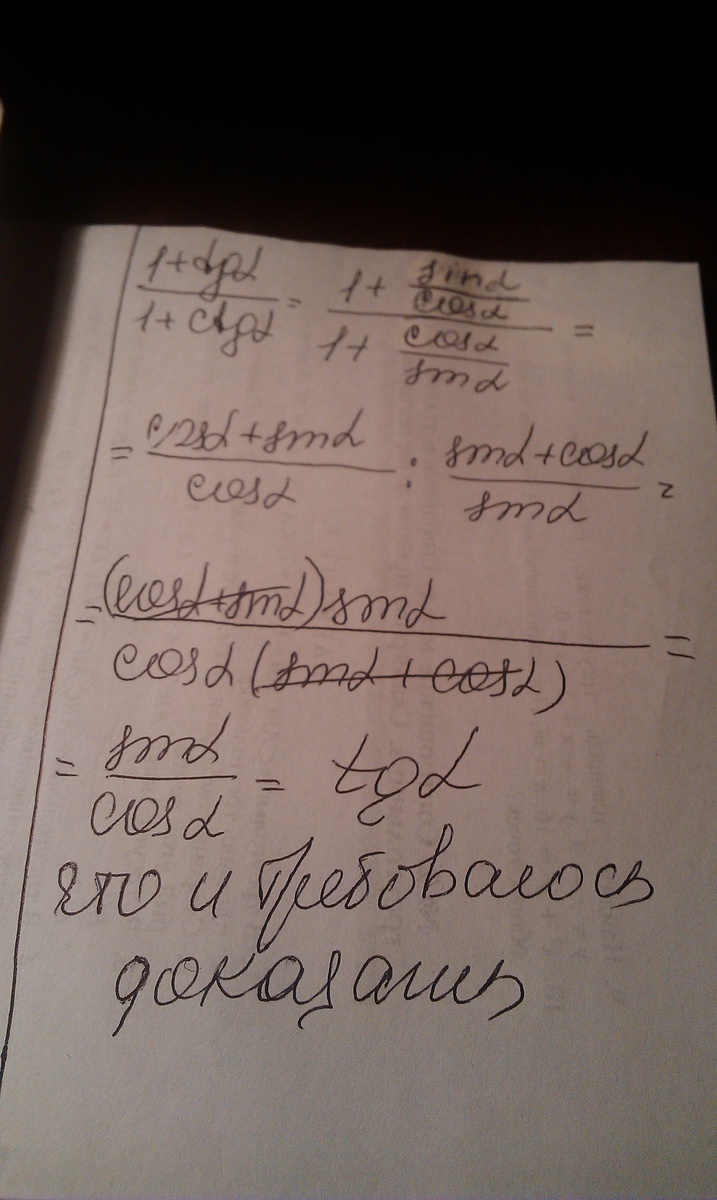 (1+tgα)/(1+ctgα) = (1+ sinα/cosα)/(1+ cosα/sinα) =
= (cosα+sinα)/cosα : (sinα+cosα)/sinα =
= (cosα+sinα)sinα / cosα(sinα+cosα) =
= sinα/cosα = tgα
что и требовалось
доказать